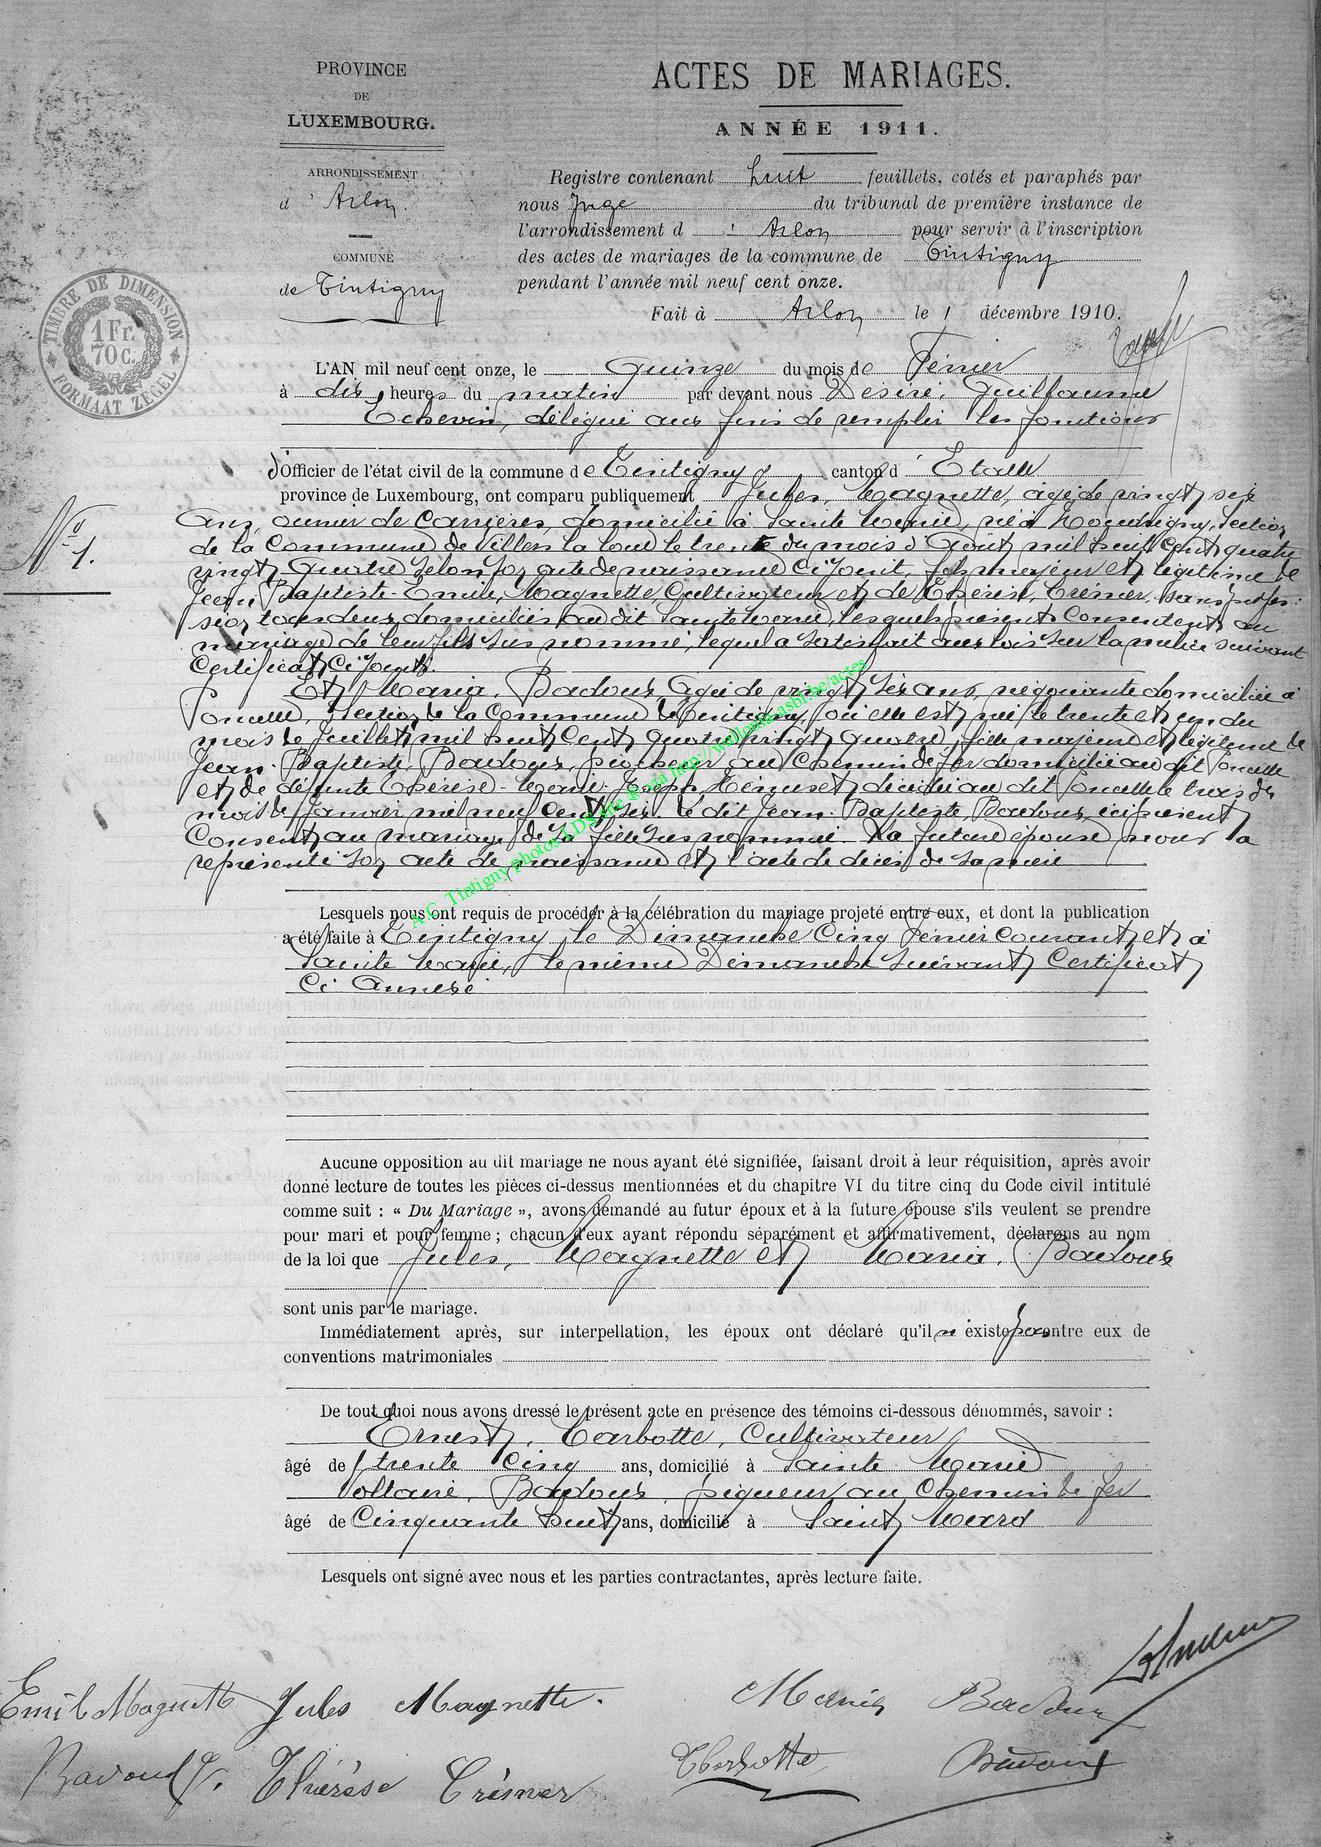 PROVINCE
DE
LUXEMBOURG.
ARRONDISSEMENT
d'Arlon.
COMMUNE
de Tintigny
TIMBRE DE DIMENSION
1 Fr.
70 C.
FORMAAT ZEGEL
ACTES DE MARIAGES.
ANNÉE 1911.
Registre contenant huit feuillets, cotés et paraphés par
nous Juge du tribunal de première instance de
l'arrondissement d'Arlon pour servir à l'inscription
des actes de mariages de la commune de Tintigny
pendant l'année mil neuf cent onze.
Fait à Arlon le 1 décembre 1910.
L'AN mil neuf cent onze, le Quinze du mois de Février
à dix heures du matin par devant nous Désiré, Guillaume
Echevin, délégué aux fins de remplir les fonctions
d'Officier de l'état civil de la commune de Tintigny canton d'Etalle
province de Luxembourg, ont comparu publiquement Jules, Magnette, âgé de vingt six
No 1.
ans, ouvrier de Carrières, domicilié à Sainte Marie, né à Houdrigny, section
de la Commune de Villers la loue le trente du mois d'Août mil huit cent quatre
vingt quatre selon son acte de naissance ci joint, fils majeur et légitime de
Jean Baptiste Emile, Magnette Cultivateur et de Thérèse, Crésmer, sans profes-
sion tous deux domiciliés au dit Sainte Marie, lesquels présents Consentent au
mariage de leur fils sus nommé, lequel a satisfait aux lois sur la milice suivant
Certificat Ci Joint.
Et Maria, Badoux, agée de vingt six ans, négociante domiciliée à
Poncelle, section de la Commune de Tintigny, où elle est née le trente et un du
mois de Juillet mil huit Cent quatre vingt quatre, fille majeure et légitime de
Jean Baptiste, Badoux, piocheur au Chemin de fer domicilié au dit Poncelle
et de défunte Thérèse Marie Joseph, décédée au dit Poncelle le trois du
mois de Janvier mil neuf Cent six. Le dit Jean Baptiste Badoux, ici présent
Consent au mariage de sa fille sus nommée. La future épouse nous a
représenté son acte de naissance et l'acte de décès de sa mère
Lesquels nous ont requis de procéder à la célébration du mariage projeté entre eux, et dont la publication
a été faite à Tintigny le Dimanche Cinq Février courant et à
Sainte Marie, le même Dimanche suivant Certificat
Ci Annexé
Aucune opposition au dit mariage ne nous ayant été signifiée, faisant droit à leur réquisition, après avoir
donné lecture de toutes les pièces ci-dessus mentionnées et du chapitre VI du titre cinq du Code civil intitulé
comme suit : « Du Mariage », avons demandé au futur époux et à la future épouse s'ils veulent se prendre
pour mari et pour femme ; chacun d'eux ayant répondu séparément et affirmativement, déclarons au nom
de la loi que Jules, Magnette et Maria, Badoux
sont unis par le mariage.
Immédiatement après, sur interpellation, les époux ont déclaré qu'il n'existe pas entre eux de
conventions matrimoniales
De tout quoi nous avons dressé le présent acte en présence des témoins ci-dessous dénommés, savoir :
Ernest, Carbotte, Cultivateur
âgé de trente Cinq ans, domicilié à Sainte Marie
Voltaire, Badoux, piqueur au Chemin de fer
âgé de Cinquante huit ans, domicilié à Saint Mard
Lesquels ont signé avec nous et les parties contractantes, après lecture faite.
Emile Magnette Jules Magnette. Maria Badoux
Badoux J. Thérèse Crésmer Badoux
A.C. Tintigny photos LDS site ® via http://wallonia-asbl.be/actes